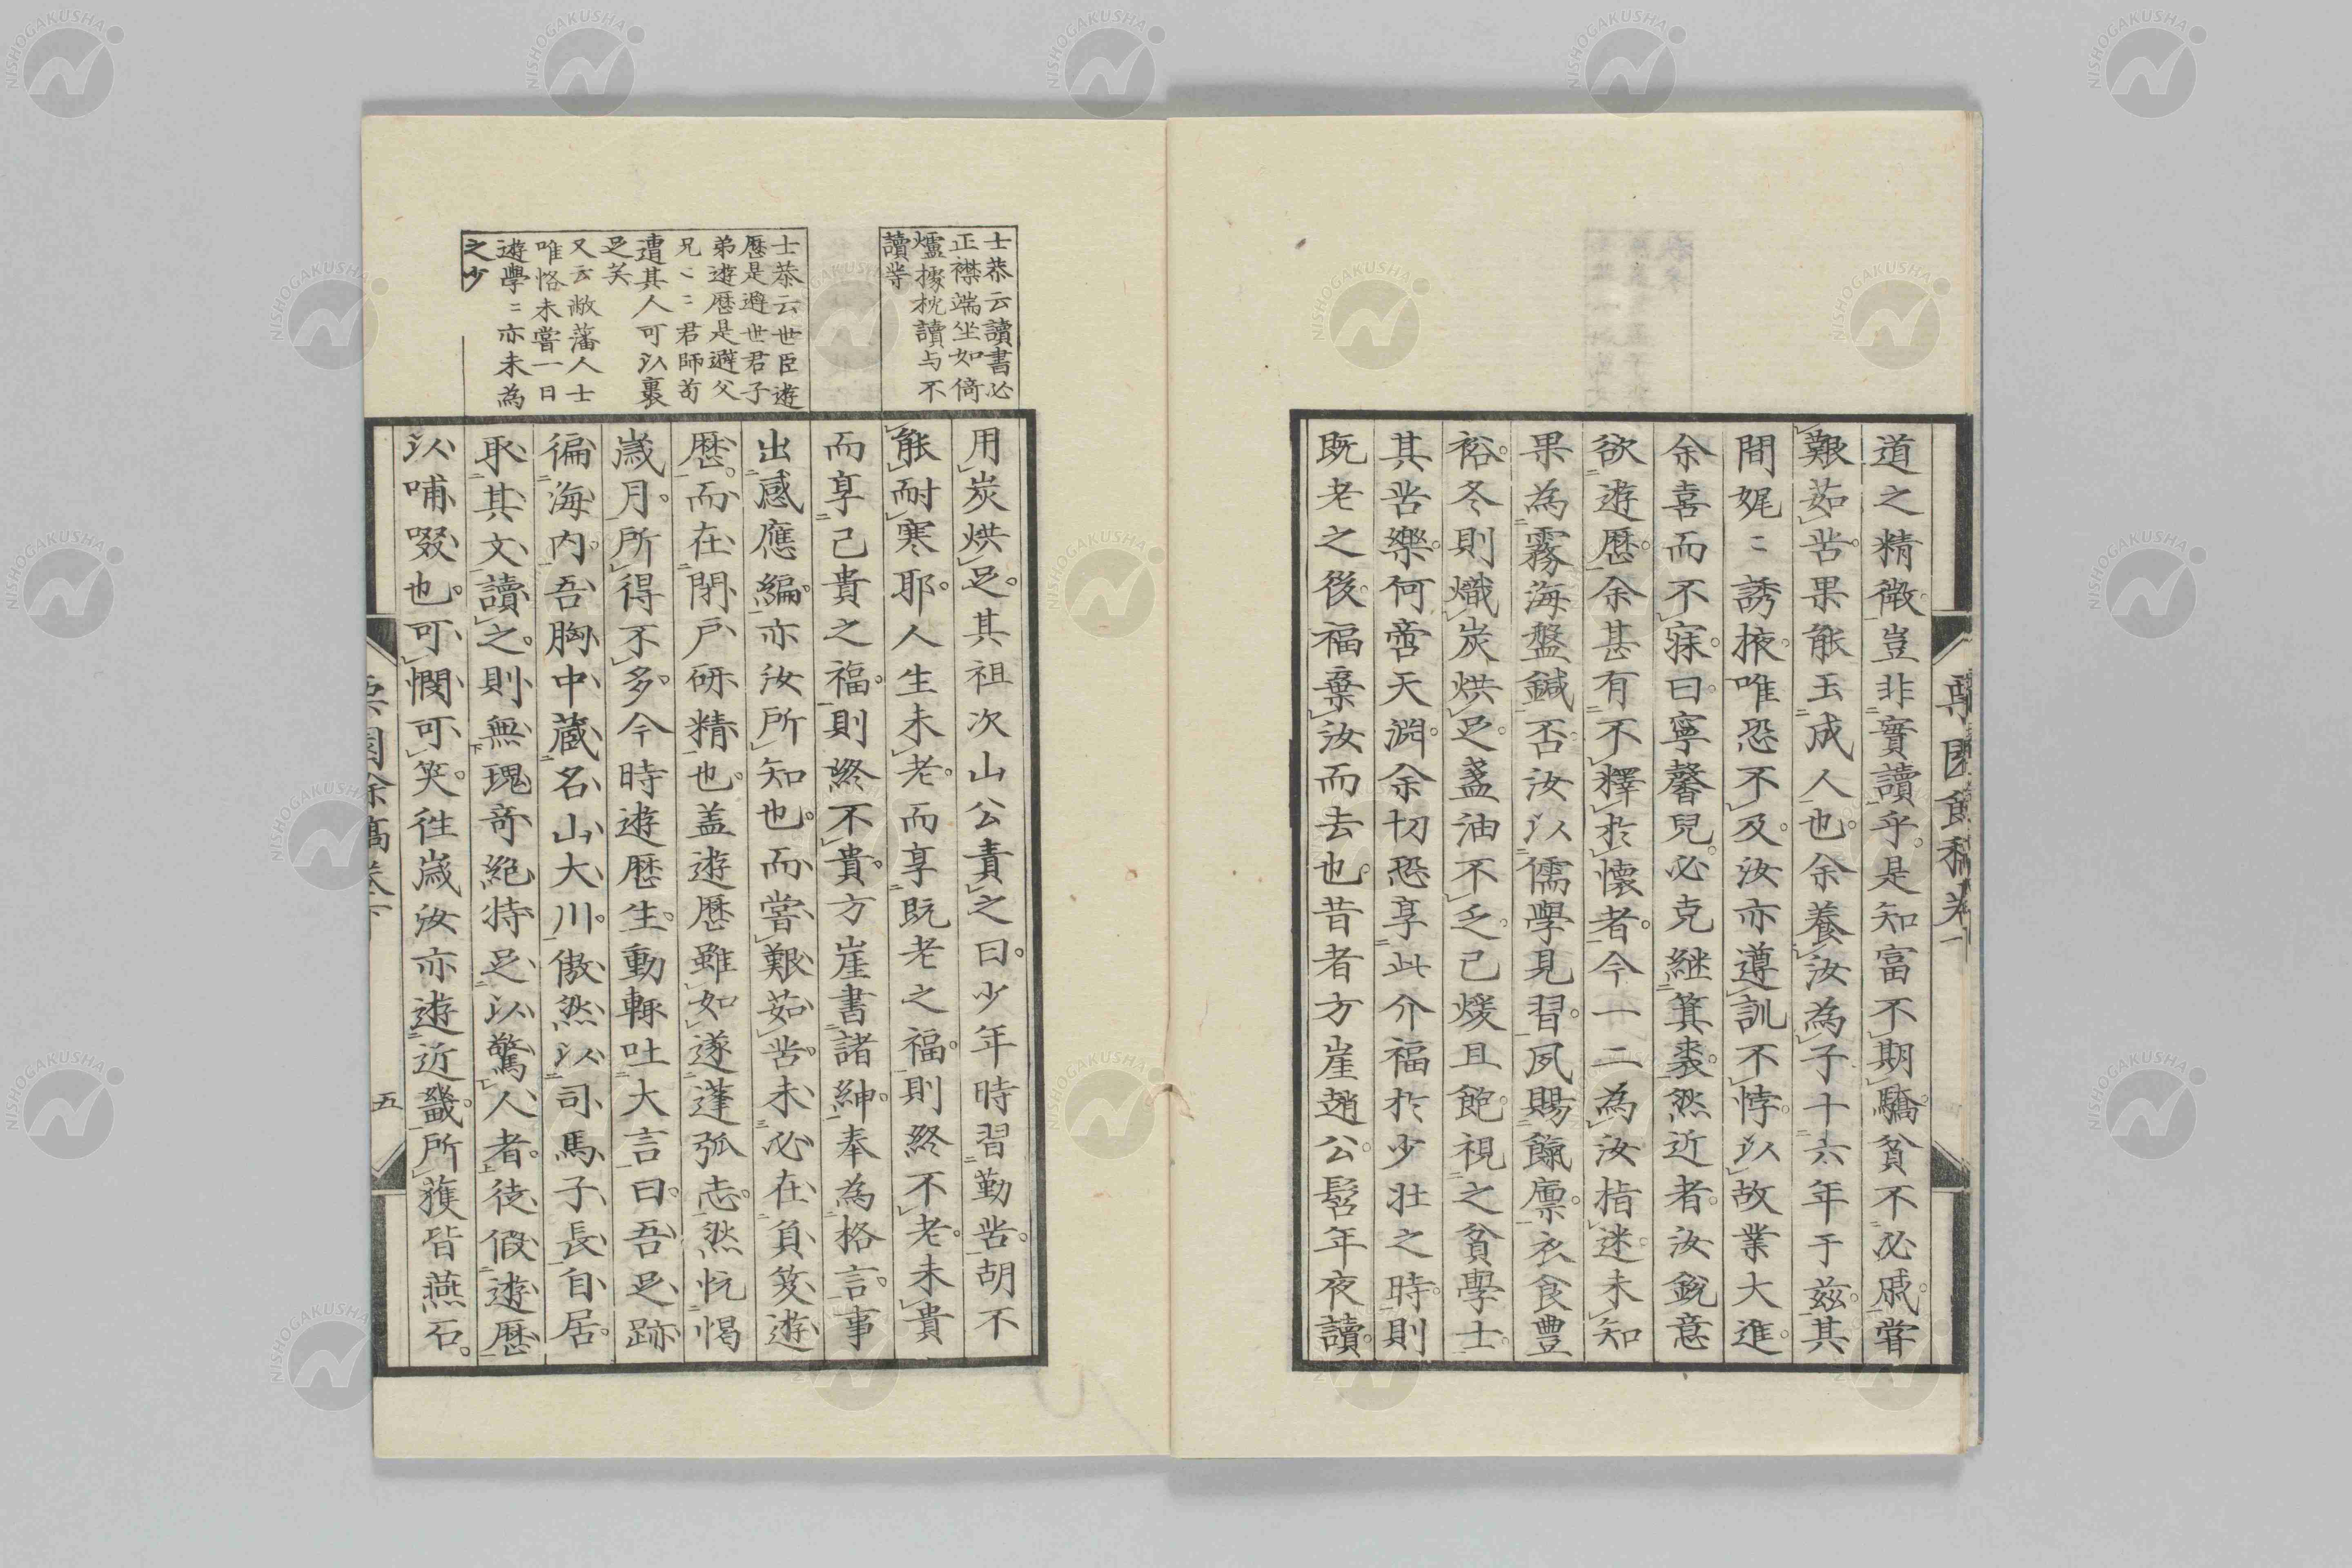 道之精微豈非實讀乎是知富不期驕貧不必戚甞
艱茹苦果能玉成人也余養汝為子十六年于茲其
間娓〻誘掖唯恐不及汝亦遵訓不悖以故業大進
余喜而不寐曰寧馨兒必克継箕裘然近者汝銳意
欲遊歷余甚有不釋於懷者今一二為汝指迷未知
果為霧海盤鍼否汝以儒學見習夙賜餼廪衣食豊
裕冬則熾炭烘足盞油不乏已煖且飽視之貧學士
其苦樂何啻天淵余切恐享此介福於少壮之時則
既老之後福棄汝而去也昔者方崖趙公髫年夜讀
士恭云讀書必
正襟端坐如倚
爐據枕讀与不
讀等
士恭云世臣遊
歷是遊世君子
弟遊歷是避父
兄〻〻君師苟
遭其人可以裹
足矣
又云敝藩人士
唯恪未嘗一日
遊學〻亦未為
之少
用炭烘足其祖次山公責之曰少年時習勤苦胡不
能耐寒耶人生未老而享既老之福則終不老未貴
而享已貴之福則終不貴方崖書諸紳奉為格言事
出感應編亦汝所知也而嘗艱茹苦未必在負笈遊
歷而在閉戸研精也盖遊歷雖如遂蓬弧志然忨愒
歲月所得不多今時遊歷生動輒吐大言曰吾足跡
徧海内吾胸中藏名山大川傲然以司馬子長自居
取其文讀之則無瑰奇絕特足以驚人者徒假遊歷
以哺啜也可憫可笑往歲汝亦遊近畿所獲皆燕石
五